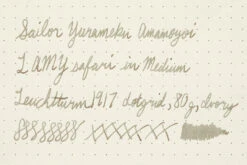 Sailor Yurameku Amamoyoi
LAMY safari in Medium
Leuchtturm1917 dotgrid, 80g, Ivory